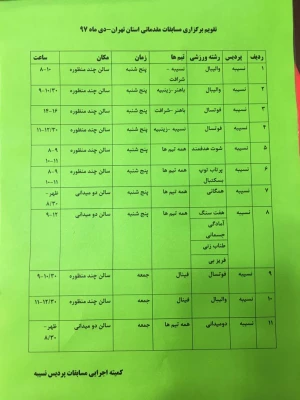 تقویم برگزاری مسابقات مقدماتی استان تهران-دی ماه ۹۷
ردیف پردیس رشته ورزشی تیم ها زمان مکان ساعت
۱ نسیبه والیبال نسیبه – شرافت پنج شنبه سالن چند منظوره ۸-۱۰
۲ نسیبه والیبال باهنر-زینبیه پنج شنبه سالن چند منظوره ۹-۱۰/۳۰
۳ نسیبه فوتسال باهنر-شرافت پنج شنبه سالن چند منظوره ۱۴-۱۶
۴ نسیبه فوتسال نسیبه -زینبیه پنج شنبه سالن چند منظوره ۱۱-۱۲/۳۰
۵ نسیبه شوت هدفمند همه تیم ها پنج شنبه سالن چند منظوره ۸-۹
۱۰-۱۱
۶ نسیبه پرتاب توپ بسکتبال همه تیم ها پنج شنبه سالن چند منظوره ۸-۹
۱۰-۱۱
۷ نسیبه همگانی همه تیم ها پنج شنبه سالن دو میدانی ظهر-
۸/۳۰
۸ نسیبه هفت سنگ همه تیم ها پنج شنبه سالن چند منظوره ۹-۱۲
آمادگی
جسمانی
طناب زنی
فریز بی
۹ نسیبه فوتسال فینال جمعه سالن چند منظوره ۹-۱۰/۳۰
۱۰ نسیبه والیبال فینال جمعه سالن چند منظوره ۱۱-۱۲/۳۰
۱۱ نسیبه دومیدانی همه تیم ها جمعه سالن دو میدانی ظهر-
۸/۳۰
کمیته اجرایی مسابقات پردیس نسیبه